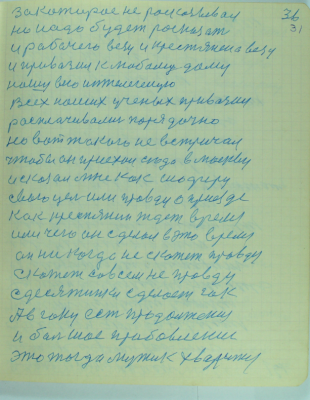 за которое не расказывал 36
но надо будет росказат 31
и рабочего везу и крестянена везу
и привозил к любому дому
нашу интелегенцию
всех наших ученых привозил
расплачивались порядочно
но вот такого не встричал
чтобы он приехал сюда в москву
и сказал мне как шоферу
свою цел или правду о приезде
как крестянин ждет время
или чего он сделал в это время
он никогда не скажет правду
скажет совсем не правду
с десятинки сделает гак
А в гаки ест продолжения
и большое прибовление
это тогда мужик